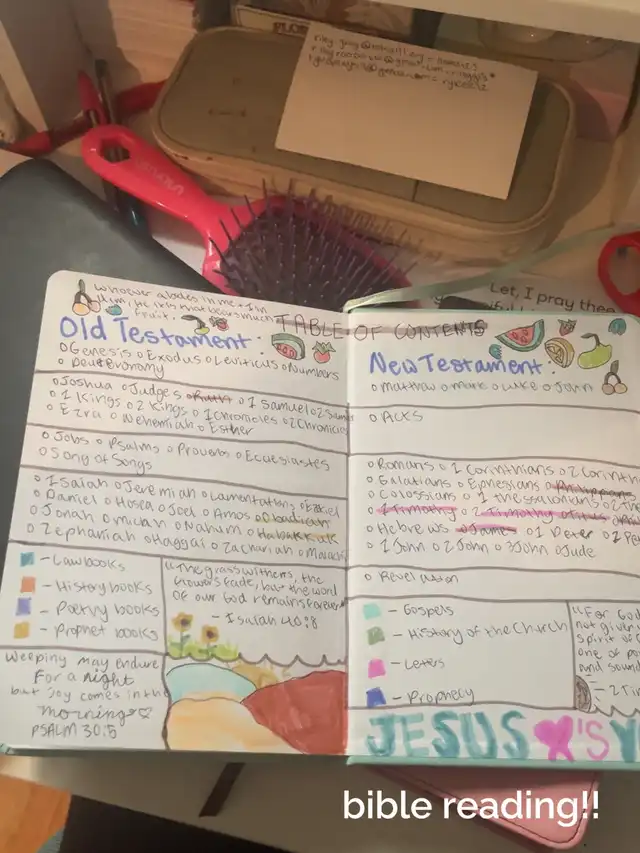 Let, I pray thee
Whoever abides in me + I in
him, he it is that bears much
fruit.
TABLE OF CONTENTS
Old Testament:
Genesis Exodus Leviticus Numbers
Deuteronomy
Joshua Judges Ruth 1 Samuel 2
1 Kings 2 Kings 1 Chronicles 2 Chronicles
Ezra Nehemiah Esther
Jobs Psalms Proverbs Ecclesiastes
Song of Songs
Isaiah Jeremiah Lamentations Ezekiel
Daniel Hosea Joel Amos Obadiah
Jonah Micah Nahum Habakkuk
Zephaniah Haggai Zachariah
- Law books
- History books
- Poetry books
- Prophet books
"The grass withers, the
flowers fade, but the word
of our God remains forever
- Isaiah 40:8
Weeping may endure
For a night
but Joy comes in the
morning
PSALM 30:5
New Testament:
Matthew Mark Luke John
Acts
Romans 1 Corinthians 2 Corinth
Galatians Ephesians Philippians
Colossians 1 Thessalonians 2
1 Timothy 2 Timothy Titus
Hebrews James 1 Peter 2 Pe
1 John 2 John 3 John Jude
Revelation
- Gospels
- History of the Church
- Leters
- Prophecy
"For God
not given
spirit of
one of po
and soun
JESUS 'S
bible reading!!